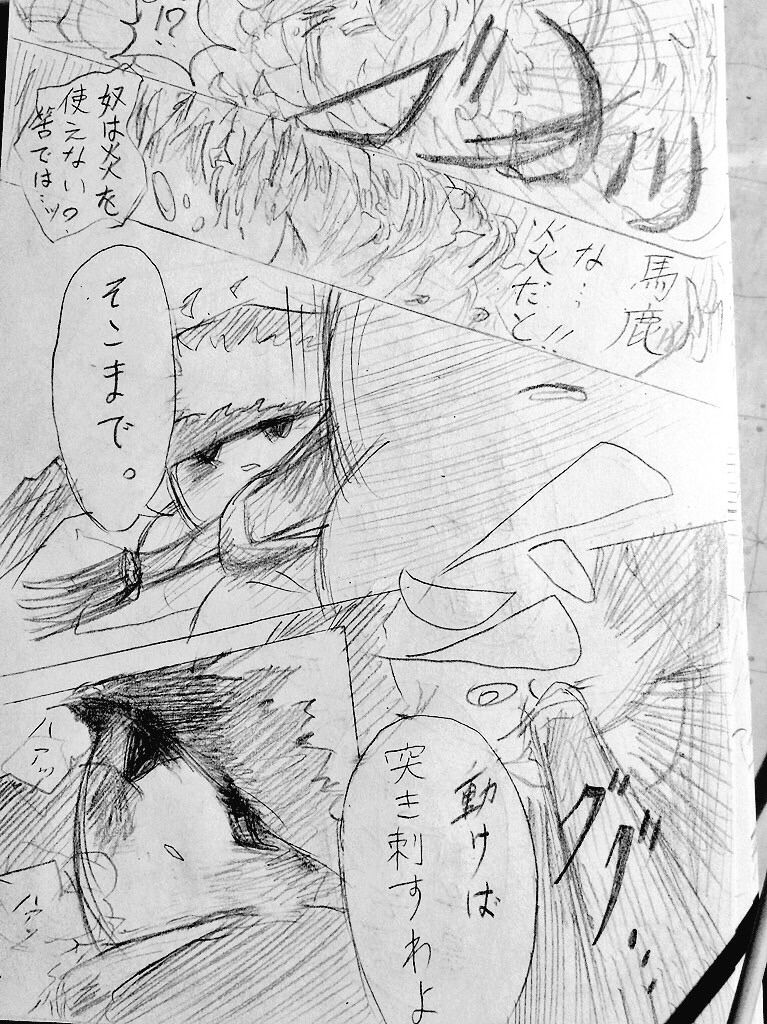 !?
馬鹿
な…
炎だと!!
奴は炎を
使えない
筈では…ッ
そこまで。
グググ…
動けば
突き刺すわよ
ハアッ